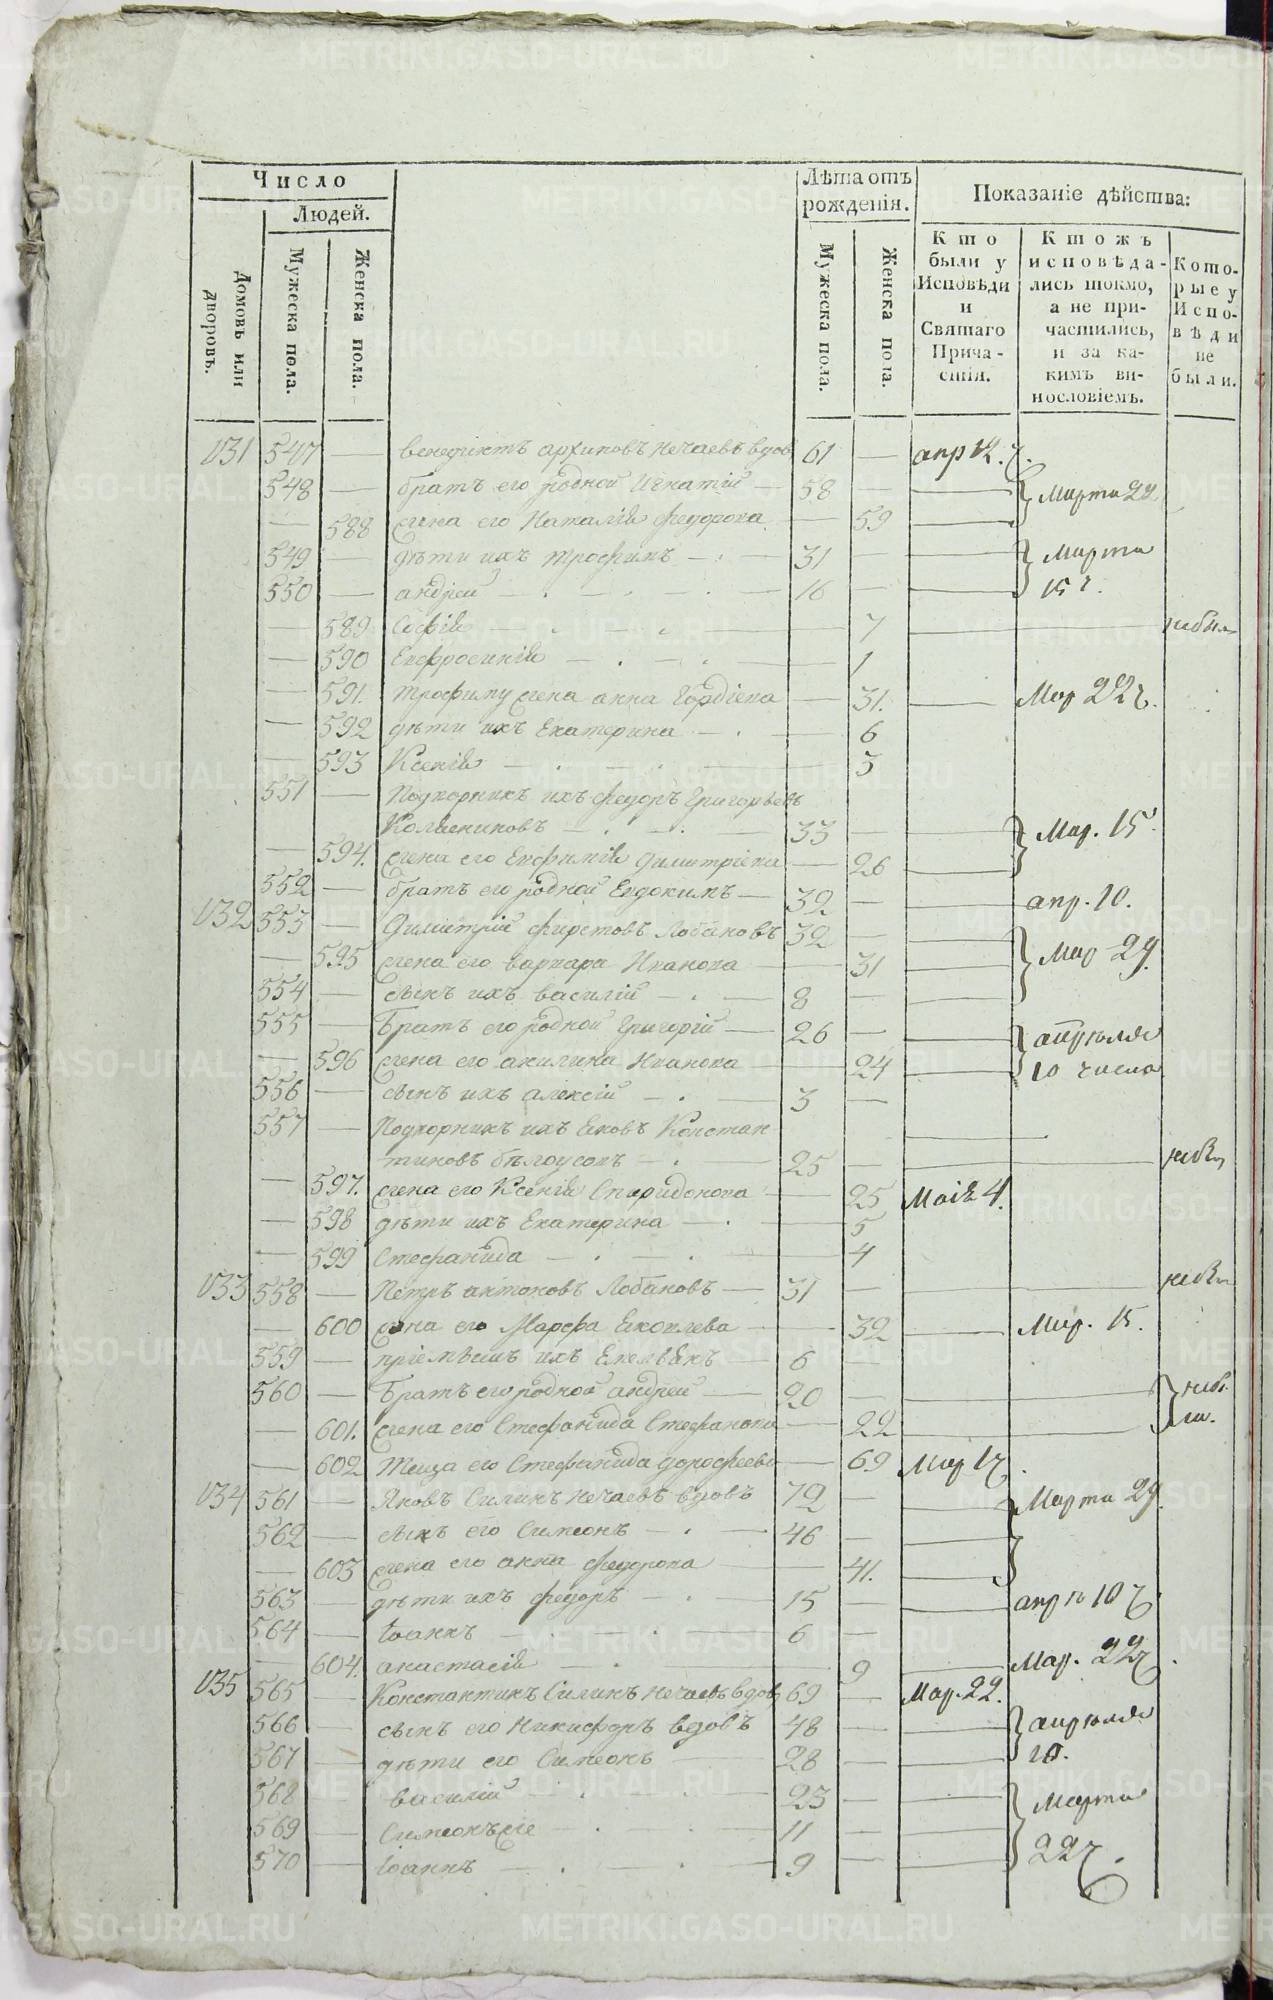 Число
Людей.
Лѣта отъ
рожденія.
Показаніе дѣйства:
Домовъ или
дворовъ.
Мужеска пола.
Женска пола.
Мужеска пола.
Женска пола.
Кто
были у
Исповѣди
и
Святаго
Прича-
стія.
Ктожъ
исповѣда-
лись токмо,
а не при-
частились,
и за ка-
кимъ ви-
нословіемъ.
Кото-
рые у
Испо-
вѣди
не
были.
131 547 — венедиктъ архиповъ Нечаевъ вдов 61 — апр 12. ч.
548 — братъ его родной Игнатій — 58 — — Марта 29
— 588 жена его Наталія федорова — 59 —
549 — дѣти ихъ трофимъ — 31 — — Марта
550 — андрей — 16 — — 15 ч.
— 589 Софія — 7 — — небыл
— 590 Евфросинія — 1
— 591. трофиму жена анна Гордіева — 31. — Мар 22 ч.
— 592 дѣти ихъ Екатерина — 6
— 593 Ксенія — 3
551 — Подворникъ ихъ федоръ Григорьевъ
Колесниковъ — 33 — Мар. 15.
— 594. жена его Евфимія димитріева — 26 —
552 — братъ его родной Евдокимъ — 32 — — апр. 10.
132 553 — Димитрій фирстовъ Лобановъ 32 — —
— 595 жена его варвара Иванова — 31 — Мар 29.
554 — сынъ ихъ василій — 8 — —
555 — Братъ его родной Григорій — 26 — — апрѣля
— 596 жена его акилина Иванова — 24 — 10 числа
556 — сынъ ихъ алексій — 3 —
557 — Подворникъ ихъ Яковъ Констан
тиновъ бѣлоусовъ — 25 — — небы
— 597. жена его Ксенія Спиридонова — 25 Маія 4.
— 598 дѣти ихъ Екатерина — 5
— 599 Стефанида — 4
133 558 — Петръ антоновъ Лобановъ — 31 — — небы
— 600 жена его Марфа Яковлева — 32 — Мар. 15.
559 — пріемышъ ихъ — 6 —
560 — Братъ его родной андрей — 20 — — небы
— 601. жена его Стефанида Стефанова — 22 — ли.
— 602 Теща его Стефанида дорофеева — 69 Мар 12.
134 561 — Яковъ Силинъ Нечаевъ вдовъ 72 — — Марта 29.
562 — сынъ его Симеонъ — 46 — —
— 603 жена его анна федорова — 41. —
563 — дѣти ихъ федоръ — 15 — — апрѣ 10 ч
564 — Іоаннъ — 6 —
— 604. анастасія — 9 — Мар. 22 ч.
135 565 — Константинъ Силинъ Нечаевъ вдов 69 — Мар. 22.
566 — сынъ его Никифоръ вдовъ 48 — — апрѣля
567 — дѣти его Симеонъ — 28 — — 10.
568 — василій — 23 — — Марта
569 — Симеонъ же — 11 —
570 — Іоаннъ — 9 — — 22 ч.